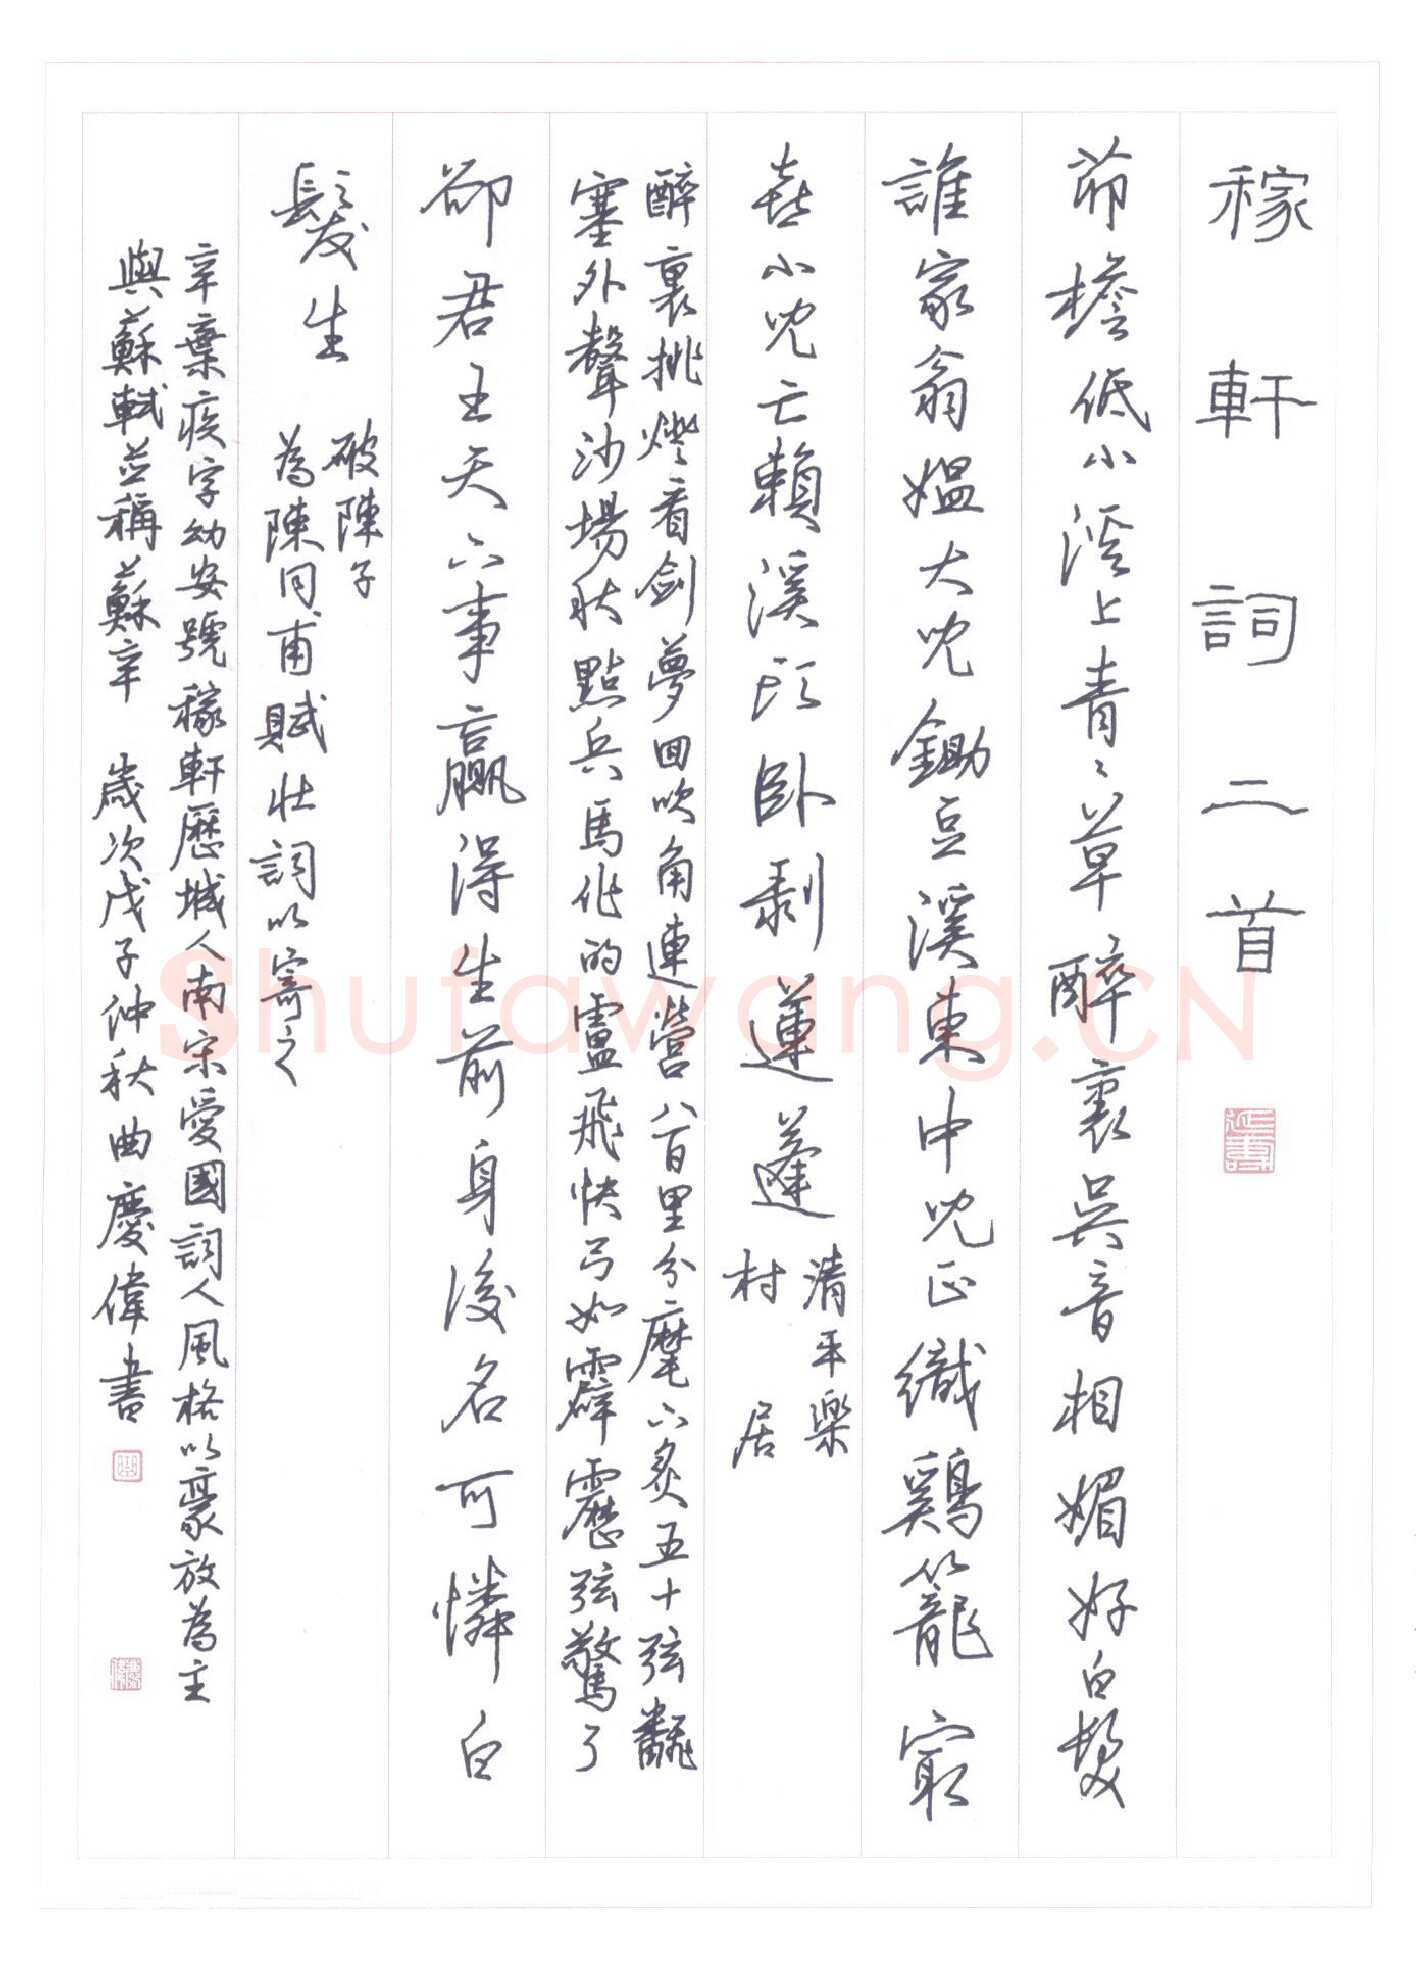 稼軒詞二首
茆檐低小溪上青〻草醉裏吳音相媚好白髮
誰家翁媼大兒鋤豆溪東中兒正織鷄籠㝡
喜小兒亡賴溪頭卧剥蓮蓬
清平樂
村居
醉裏挑燈看劍夢回吹角連營八百里分麾下炙五十弦翻
塞外聲沙場秋點兵馬作的盧飛快弓如霹靂弦驚了
卻君王天下事贏得生前身後名可憐白
髮生
破陣子
為陳同甫賦壯詞以寄之
辛棄疾字幼安號稼軒歷城人南宋愛國詞人風格以豪放為主
與蘇軾並稱蘇辛 歲次戊子仲秋曲慶偉書
Shufawang.CN